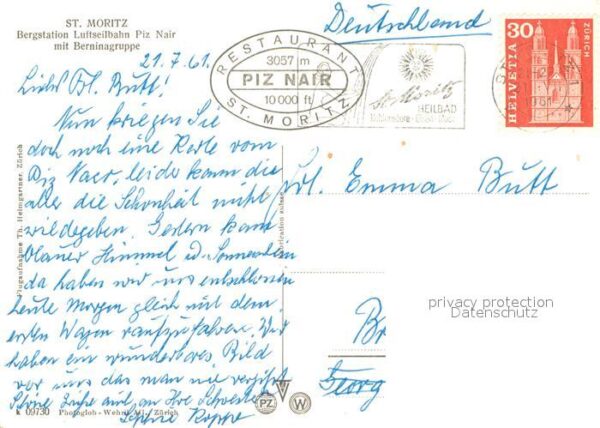 ST. MORITZ
Bergstation Luftseilbahn Piz Nair
mit Berninagruppe
Deutschland
21.7.61.
RESTAURANT
3057 m
PIZ NAIR
10 000 ft
ST. MORITZ
St. Moritz
HEILBAD
30
HELVETIA
ZÜRICH
Liebes Frl. Butt!
Nun kriegen Sie
doch noch eine Karte vom
Piz Nair, leider kann die
alle die Schönheit nicht
wiedergeben. Gestern kam
blauer Himmel u. Sonnenschein
da haben wir uns entschlossen
heute Morgen gleich mit dem
ersten Wagen raufzufahren. Wir
haben ein wunderbares Bild
vor uns das man nie vergißt.
Schöne Grüße auch an Ihre Schwester
Sophie Roppe
Frl. Emma Butt
Br
Georg
privacy protection
Datenschutz
Flugaufnahme Th. Heimgartner, Zürich
k 09730 Photoglob-Wehrli AG, Zürich
PZ W